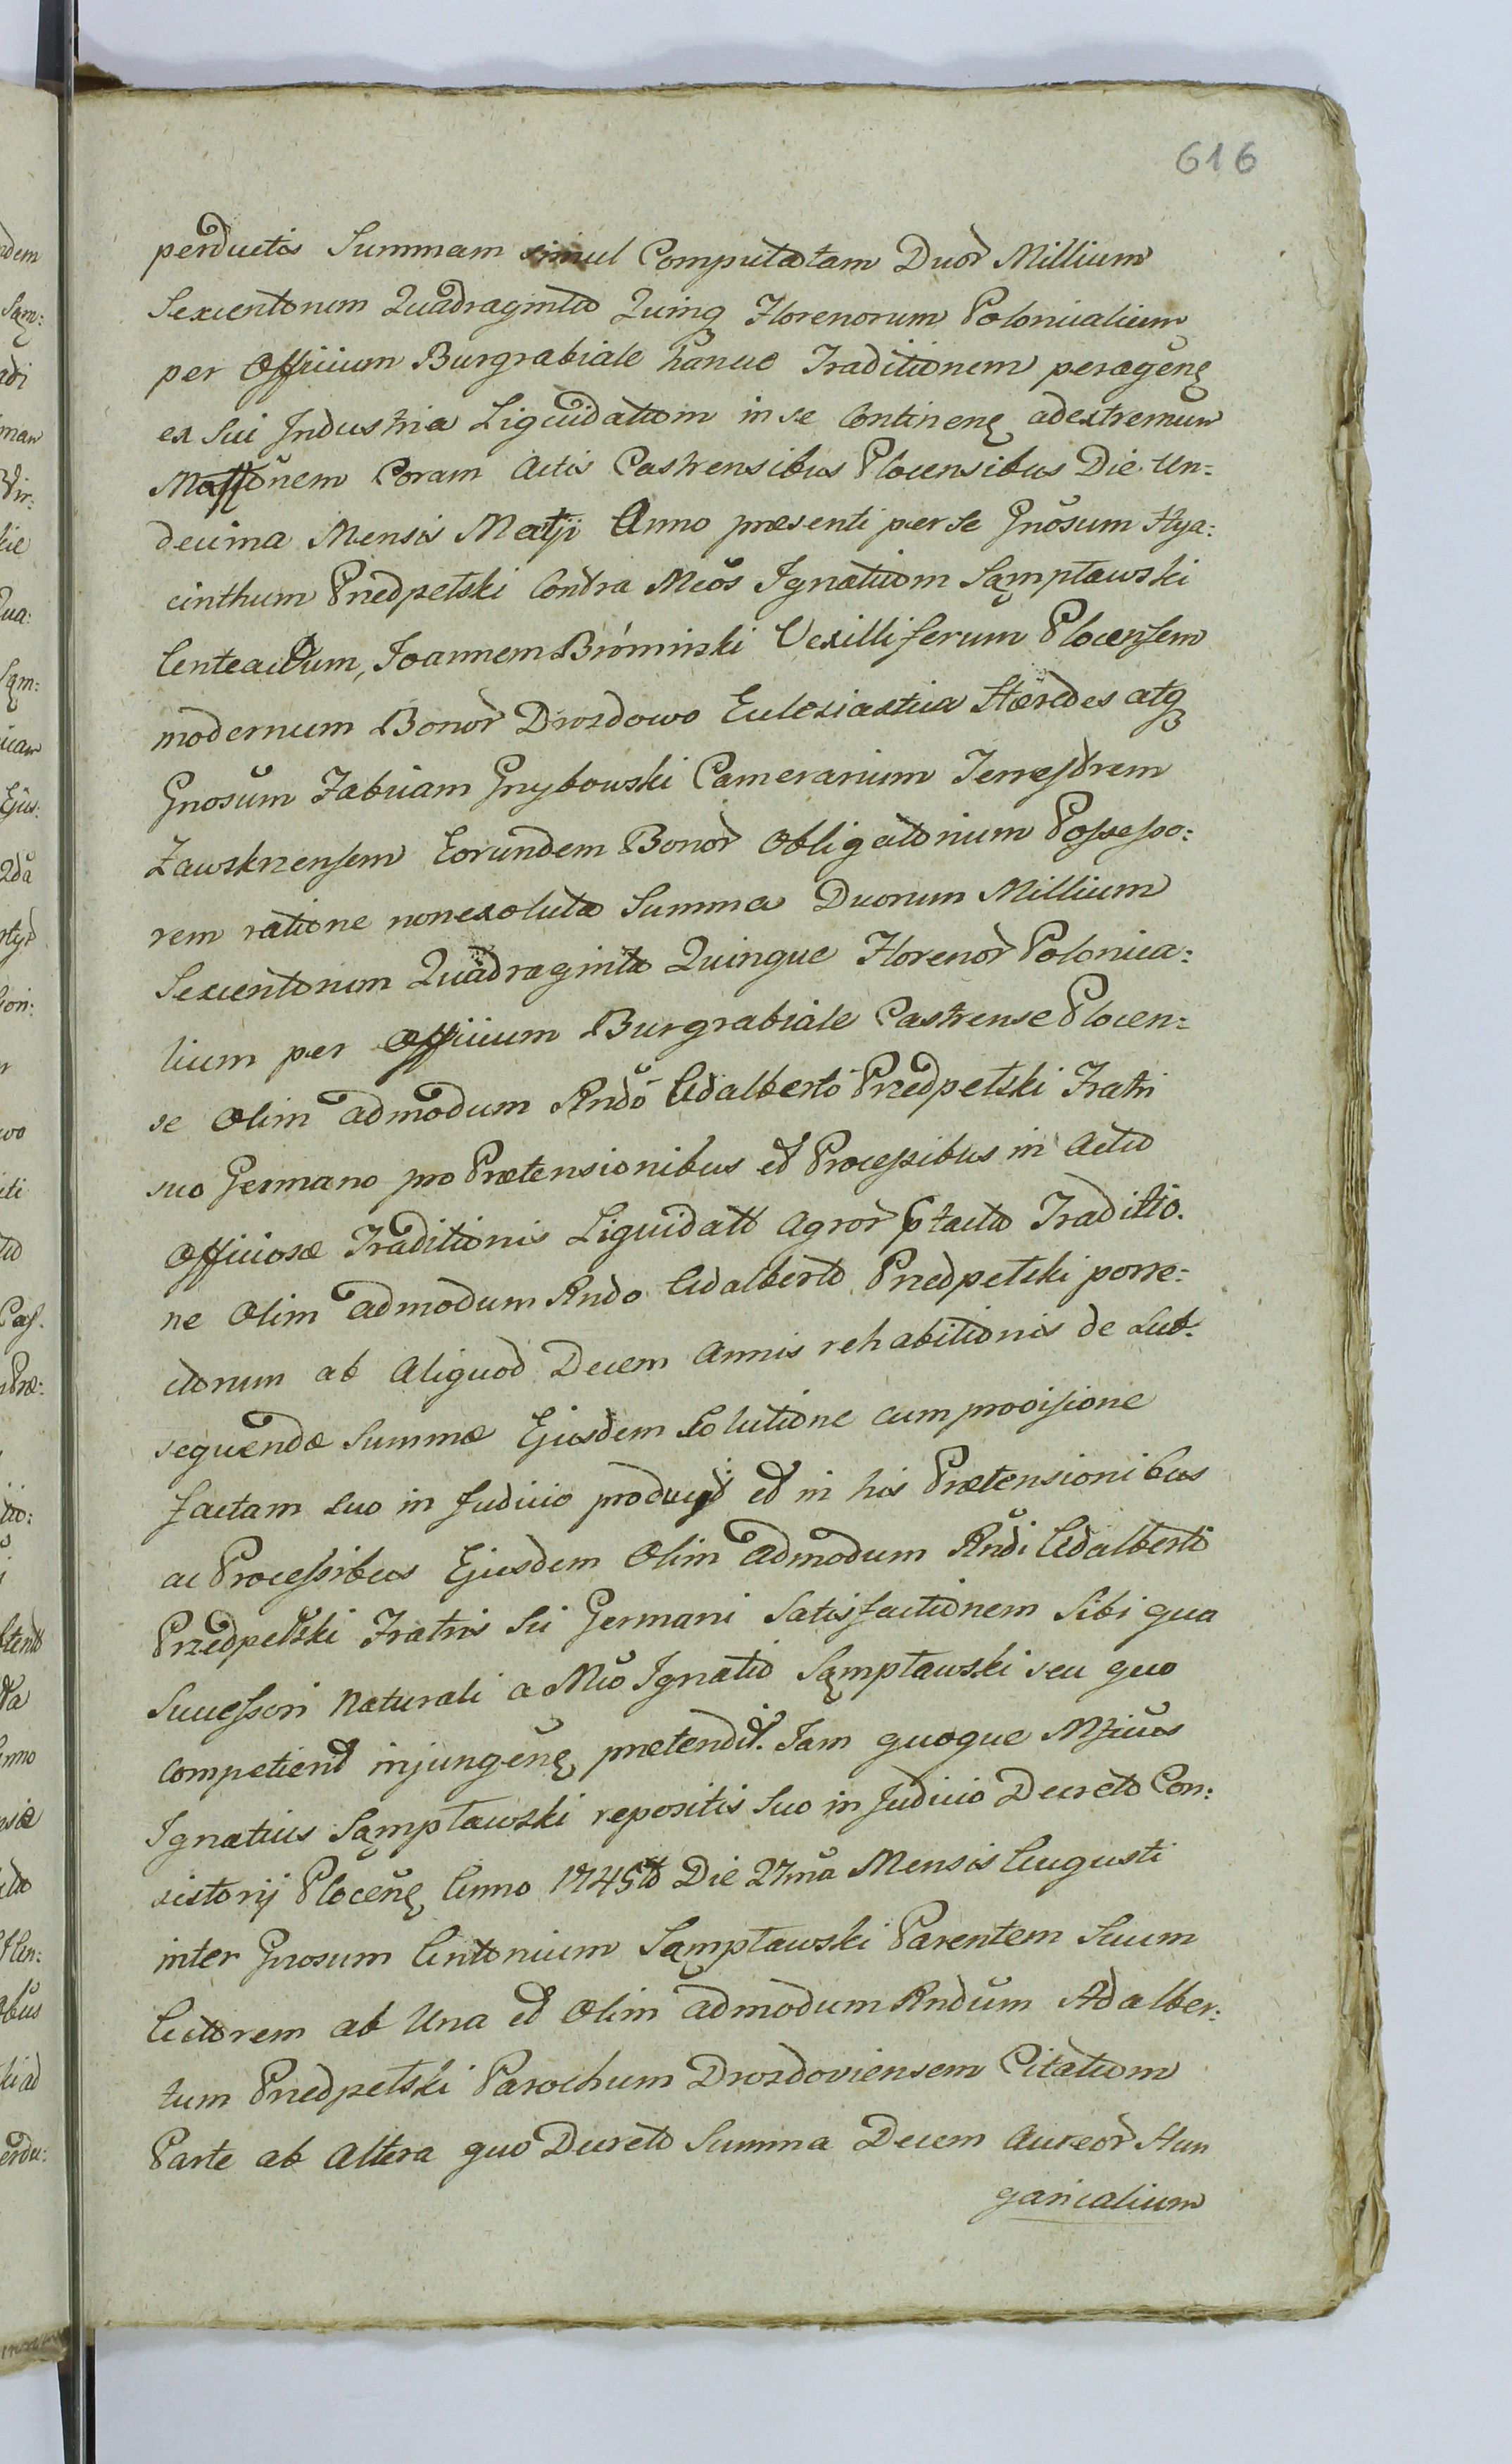 616
perductis Summam simul Computatam Duor̀ Millium
Sexcentorum Quadraginta Quinq Florenorum Polonicalium
per Officium Burgrabiale hanuc Traditionem peragen̄ę
ex Sui Industria Liquidatam in se Continen̄ę ad extremum
Maffōnem Coram Actis Castrensibus Plocensibus Die Un:
decima Mensis Matji Anno præsenti per se Gnōsum Hya:
cinthum Przedpełski Contra Mcōs Ignatium Sąmpławski
Centeacdum, Joannem Bromirski Vexilliferum Plocensem
modernum Bonor̀ Drozdowo Ecclesiastica Hæredes atq
Gnosum Fabiam Grzybowski Camerarium Terrestrem
Zawskrzensem Eorundem Bonor̀ Obligatorium Possesso:
rem ratione non exoluta Summa Duorum Millium
Sexcentorum Quadraginta Quinque Florenor̀ Polonica:
lium per Officium Burgrabiale Castrense Plocen:
se Olim admodum Rndō Adalberto Przedpełski Fratri
suo Germano pro Prætensionibus et Processibus in Acto
Officiosæ Traditionis Liquidatt Agror̀ ptacto Traditio.
ne Olim admodum Rndo Adalberto Przedpełski porre:
ctorum ab Aliquod Decem Annis rehabitionis de Sub:
sequenda Summæ Ejusdem Solutione cum provisione
factam suo in Judicio producit et in his Prætensionibus
ac Processibus Ejusdem Olim admodum Rndi Adalberti
Przedpełski Fratris Sui Germani Satisfactionem Sibi qua
Successori Naturali a Mcō Ignatio Sąmpławski seu quo
competient injungen̄ę prætendit. Jam quoque Mficus
Ignatius Sąmpławski repositis Suo in Judicio Decreto Con:
sistorij Plocen̄ę Anno 1745to Die 27mā Mensis Augusti
inter Gnosum Antonium Sąmpławski Parentem Suum
Actorem ab Una et Olim admodum Rndum Adalber:
tum Przedpełski Parochum Drozdoviensem Citatum
Parte ab Altera quo Decreto Summa Decem Aureor̀ Hun
garicalium